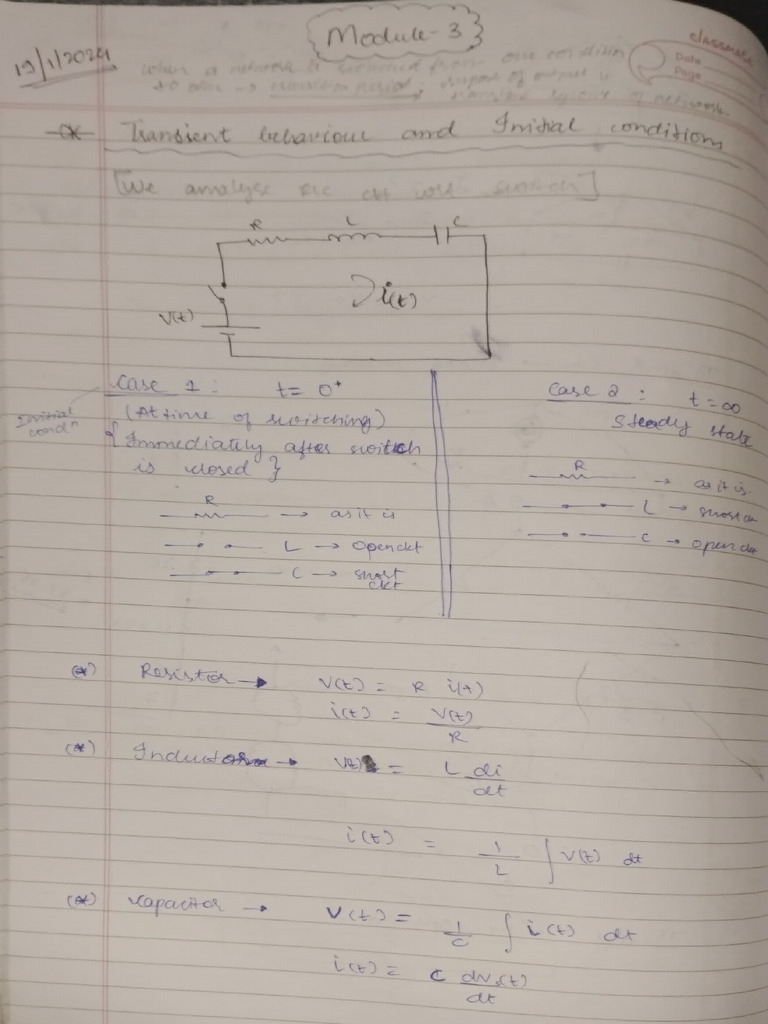 Module - 3
classmate
Date
Page
19/1/2024
When a network is switched from one condition
to other → transition period, output of
of network.
Transient behaviour and Initial conditions
[We analyse switch]
R L C
i(t)
V(t)
Case 1: t = 0⁺
(At time of switching)
{Immediately after switch
is closed}
Initial
condⁿ
R → as it is
L → open ckt
C → short
ckt
Case 2: t = ∞
Steady state
R → as it is
L → short ckt
C → open ckt
(*) Resistor → V(t) = R i(t)
i(t) = V(t)/R
(*) Inductor → V(t) = L di/dt
i(t) = 1/L ∫ V(t) dt
(*) Capacitor → V(t) = 1/C ∫ i(t) dt
i(t) = C dV(t)/dt